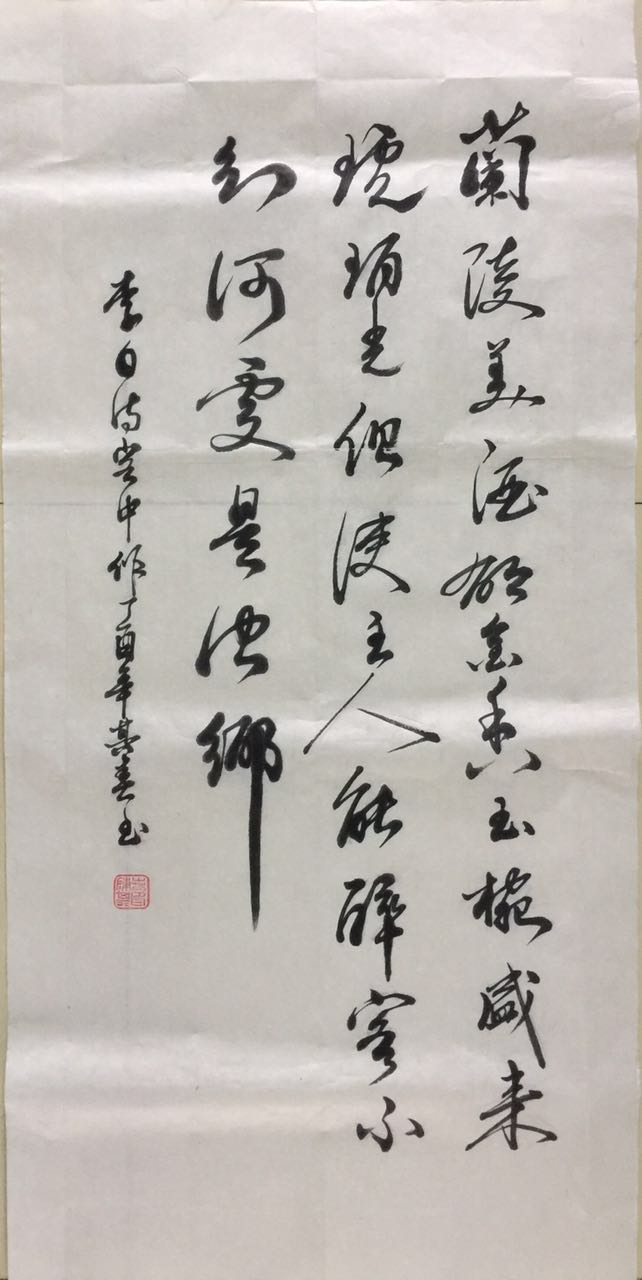 蘭陵美酒郁金香玉椀盛来
琥珀光但使主人能醉客不
知何處是他鄉
李白诗客中作丁酉年其春玉